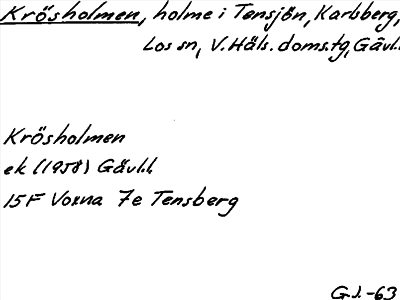 Krösholmen, holme i Tensjön, Karlsberg,
Los sn, V. Häls. doms.tg, Gävl.
Krösholmen
ek (1958) Gävl.l.
15F Voxna 7e Tensberg
G.J. -63